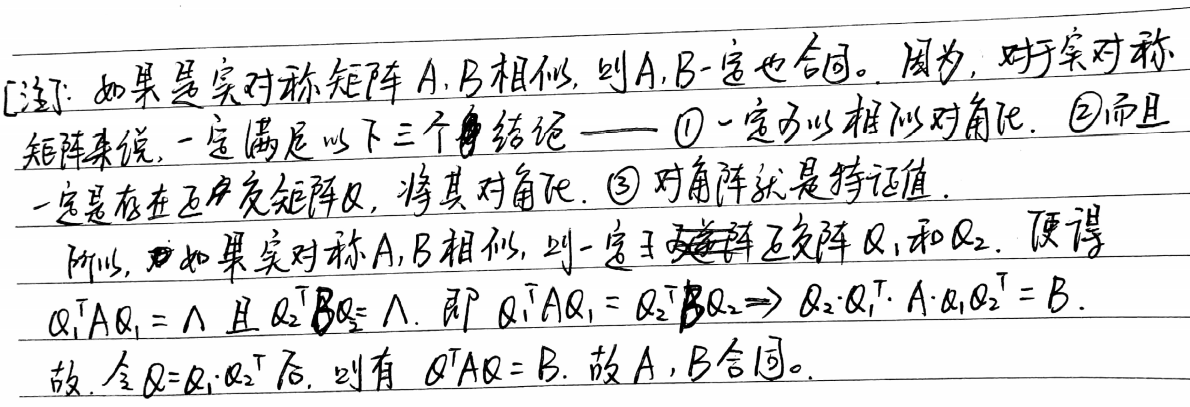 [注]: 如果是实对称矩阵 A, B 相似, 则 A, B 一定也合同。因为, 对于实对称
矩阵来说, 一定满足以下三个结论 —— ① 一定可以相似对角化. ②而且
一定是存在正交矩阵Q, 将其对角化. ③ 对角阵就是特证值.
所以, 如果实对称 A, B 相似, 则一定∃正交阵 Q₁和Q₂. 使得
Q₁ᵀAQ₁ = Λ 且 Q₂ᵀBQ₂ = Λ. 即 Q₁ᵀAQ₁ = Q₂ᵀBQ₂ ⇒ Q₂·Q₁ᵀ·A·Q₁Q₂ᵀ = B.
故. 令 Q=Q₁·Q₂ᵀ 后, 则有 QᵀAQ = B. 故 A, B 合同。